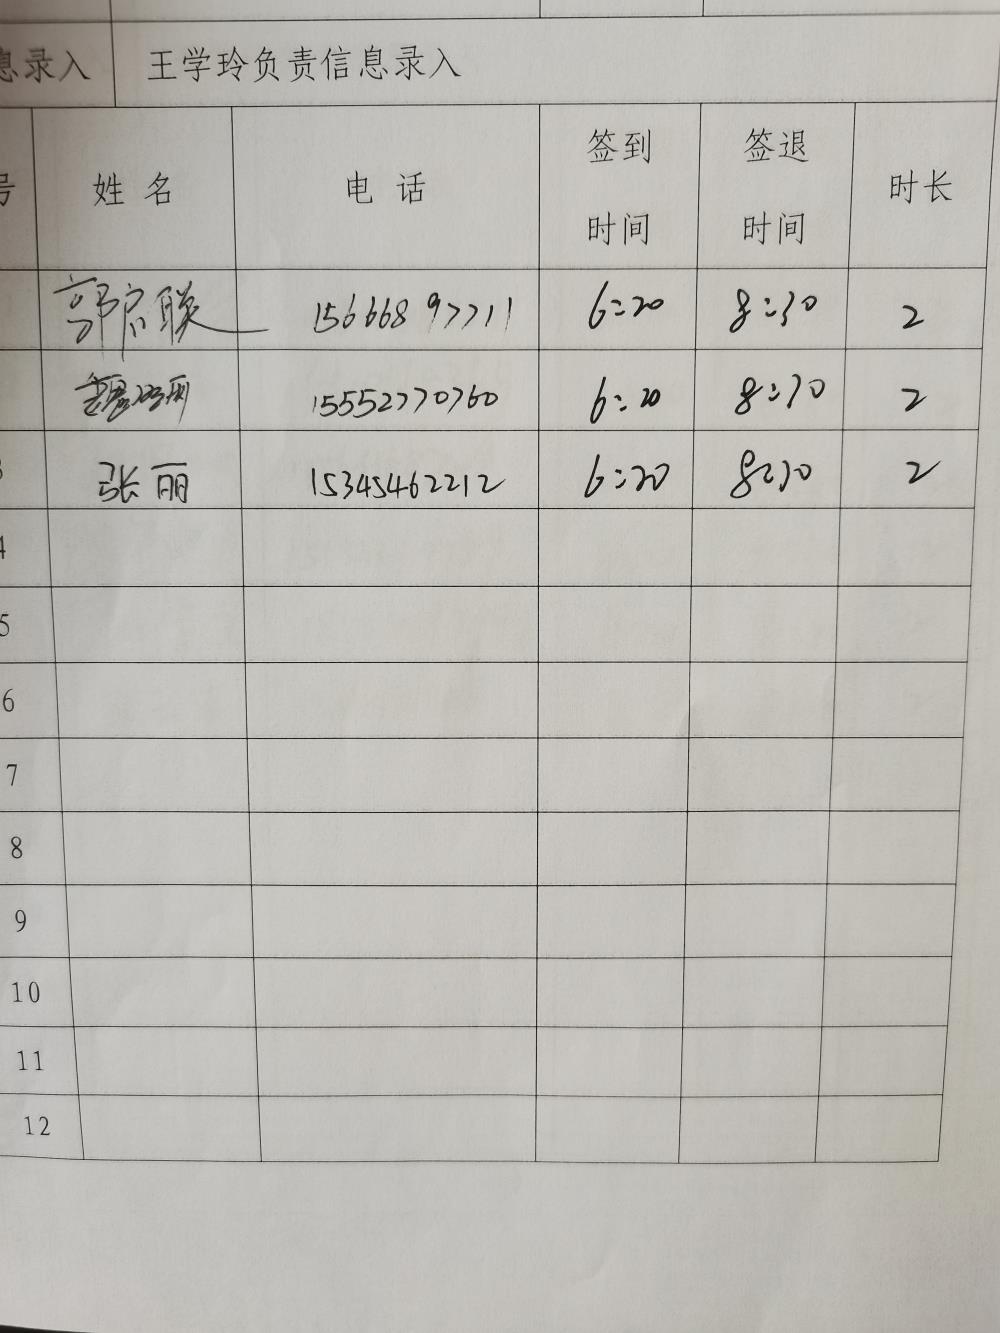 息录入 王学玲负责信息录入
号 姓名 电话 签到时间 签退时间 时长
郭启联 15666897711 6:20 8:30 2
15552770760 6:20 8:30 2
3 张丽 15345462212 6:20 8:30 2
4
5
6
7
8
9
10
11
12